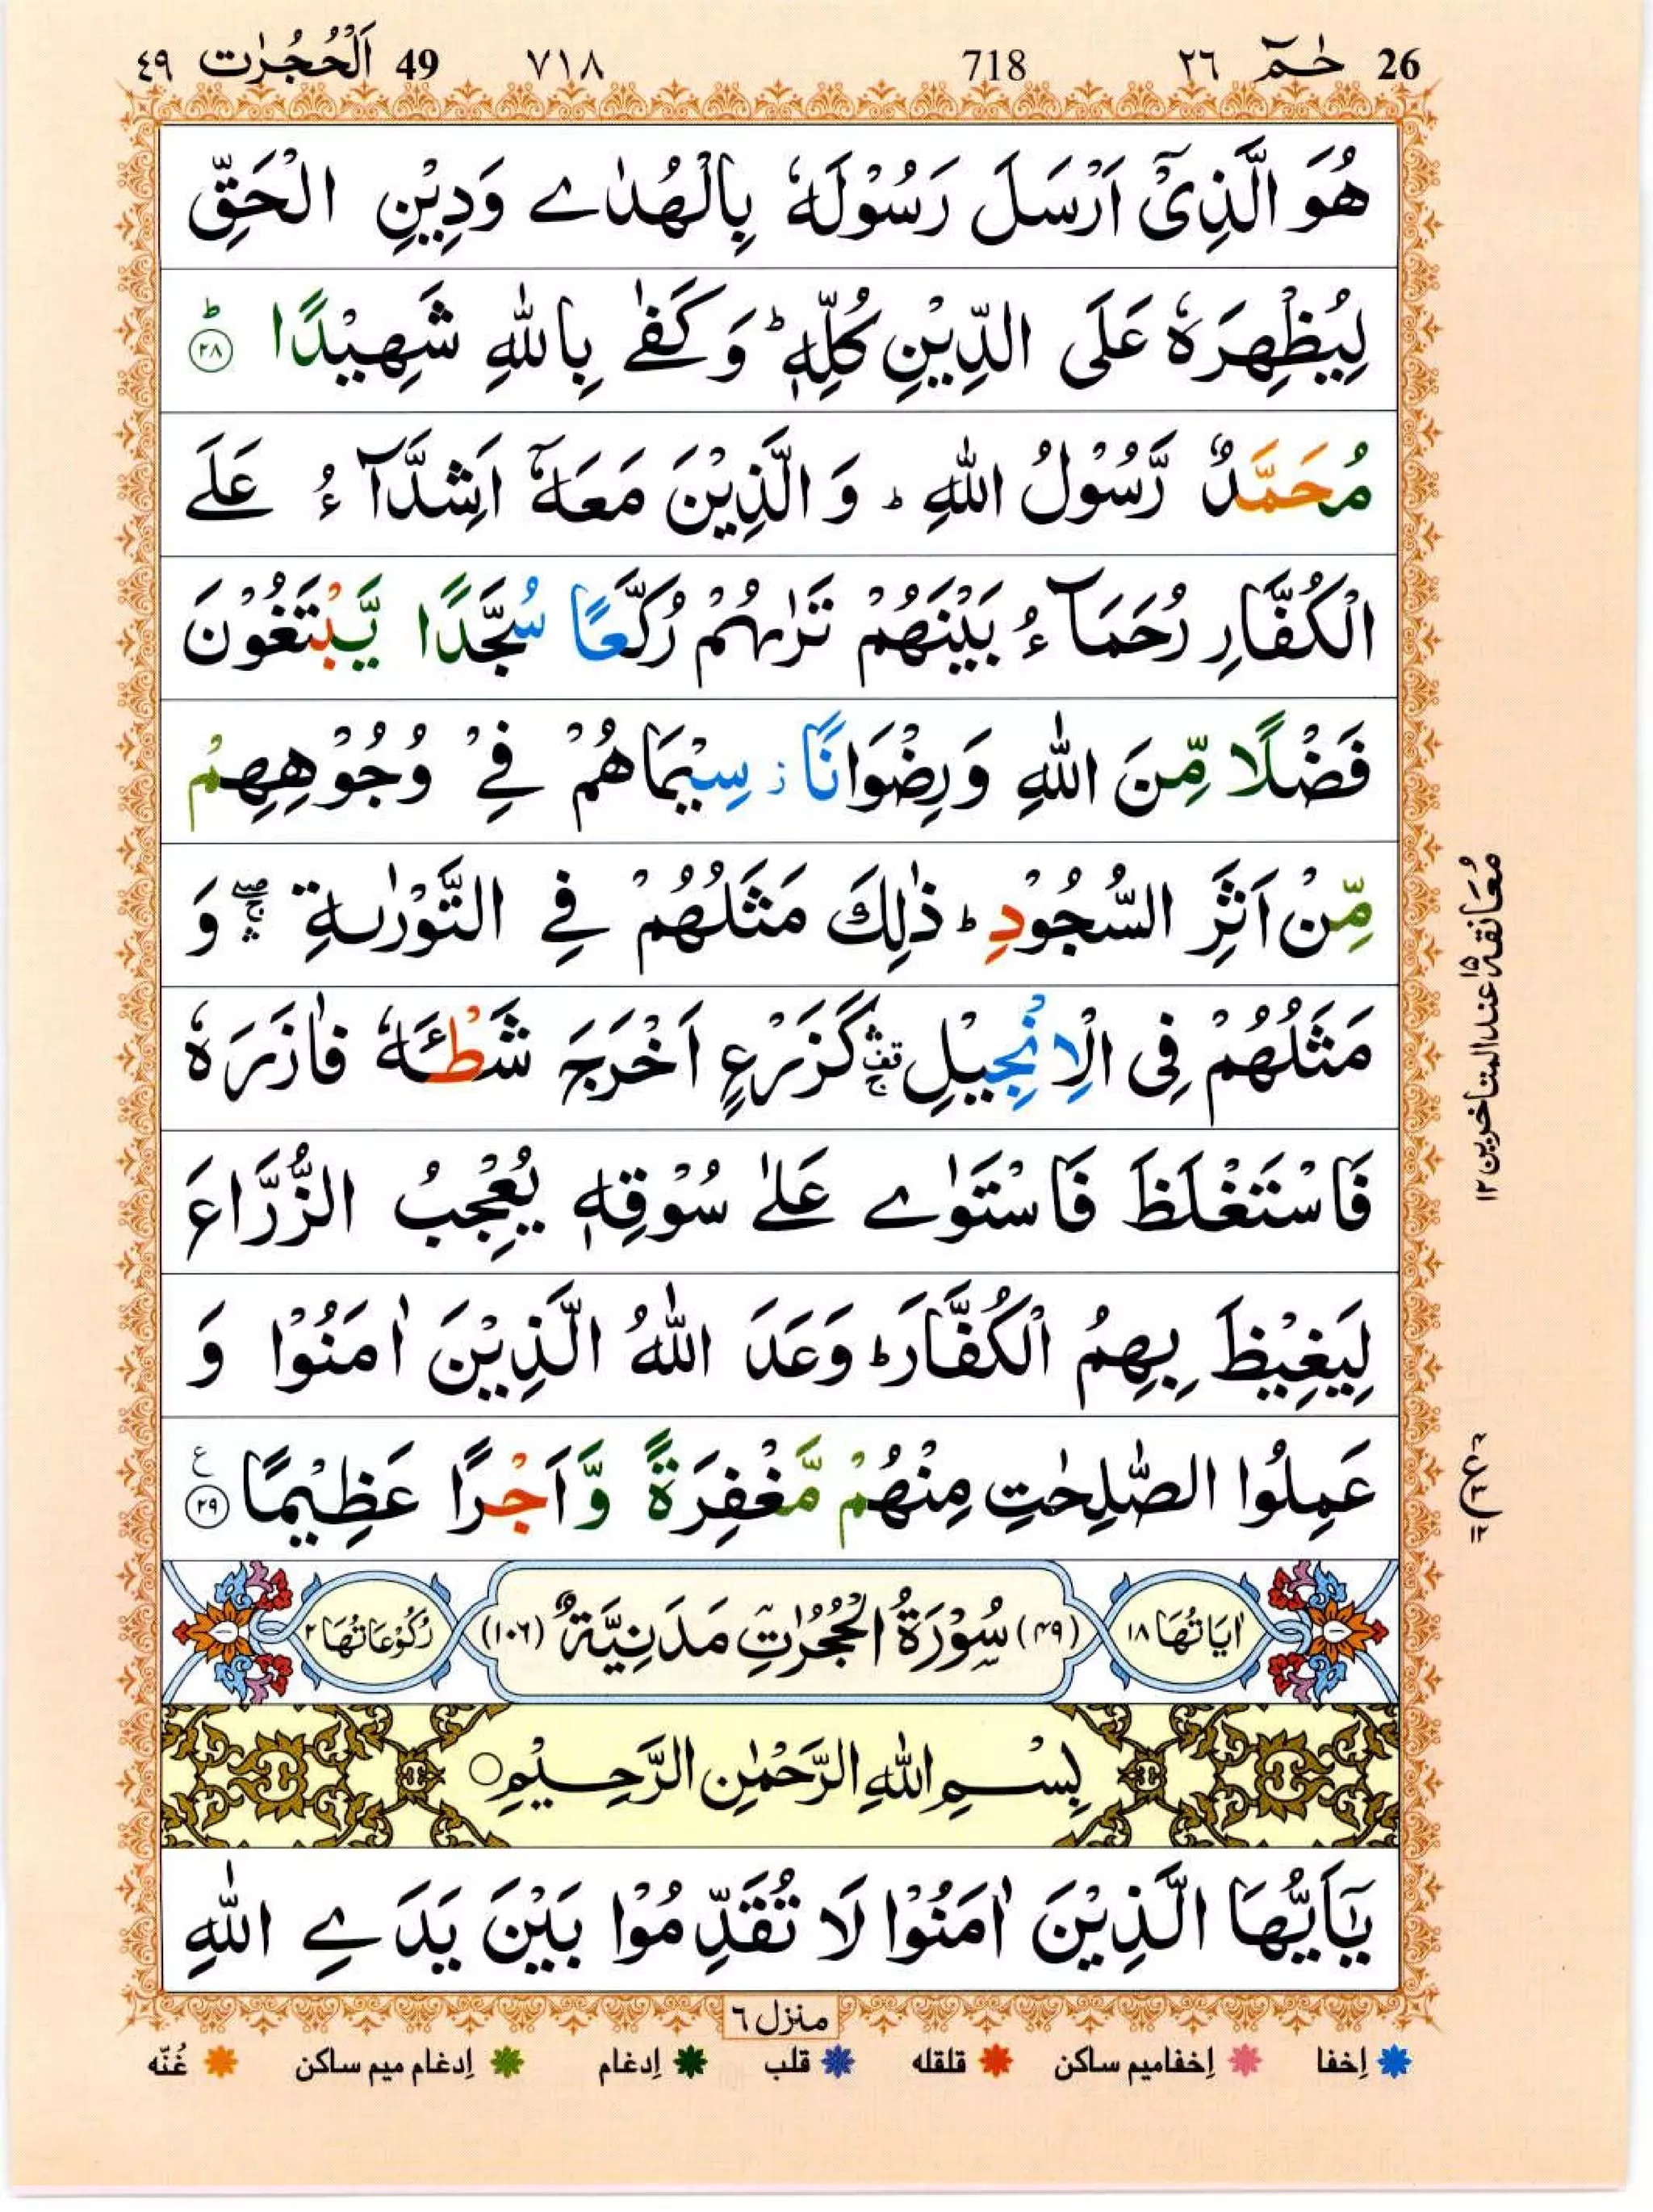 26 حٰمٓ ٢٦ 718 ٧١٨ 49 اَلْحُجُرٰت ٤٩
هُوَ الَّذِیْۤ اَرْسَلَ رَسُوْلَهٗ بِالْهُدٰے وَدِیْنِ الْحَقِّ
لِیُظْهِرَهٗ عَلَی الدِّیْنِ كُلِّهٖ ؕ وَ كَفٰے بِاللّٰهِ شَهِیْدًا ؕ ﴿۲۸﴾
مُحَمَّدٌ رَّسُوْلُ اللّٰهِ ؕ وَ الَّذِیْنَ مَعَهٗۤ اَشِدَّآءُ عَلَے
الْكُفَّارِ رُحَمَآءُ بَیْنَهُمْ تَرٰىهُمْ رُكَّعًا سُجَّدًا یَّبْتَغُوْنَ
فَضْلًا مِّنَ اللّٰهِ وَرِضْوَانًا ز سِیْمَاهُمْ فِیْ وُجُوْهِهِمْ
مِّنْ اَثَرِ السُّجُوْدِ ؕ ذٰلِكَ مَثَلُهُمْ فِے التَّوْرٰىةِ ۛۖۚ وَ
مَثَلُهُمْ فِی الْاِنْجِیْلِ ۛ۫ۚ كَزَرْعٍ اَخْرَجَ شَطْـَٔهٗ فَاٰزَرَهٗ
فَاسْتَغْلَظَ فَاسْتَوٰے عَلٰے سُوْقِهٖ یُعْجِبُ الزُّرَّاعَ
لِیَغِیْظَ بِهِمُ الْكُفَّارَ ؕ وَعَدَ اللّٰهُ الَّذِیْنَ اٰمَنُوْا وَ
عَمِلُوا الصّٰلِحٰتِ مِنْهُمْ مَّغْفِرَةً وَّ اَجْرًا عَظِیْمًا ﴿۲۹﴾ ع
اٰیَاتُهَا ١٨ (۴۹) سُوْرَةُ الْحُجُرٰتِ مَدَنِیَّةٌ (۱۰۶) رُكُوْعَاتُهَا ٢
بِسْمِ اللّٰهِ الرَّحْمٰنِ الرَّحِیْمِ ○
یٰۤاَیُّهَا الَّذِیْنَ اٰمَنُوْا لَا تُقَدِّمُوْا بَیْنَ یَدَےِ اللّٰهِ
معانقة ۱۵ عند المتاخرین ۱۲
ع
منزل ٦
إخفا إخفامیم ساکن قلقله قلب إدغام إدغام میم ساکن غُنّه